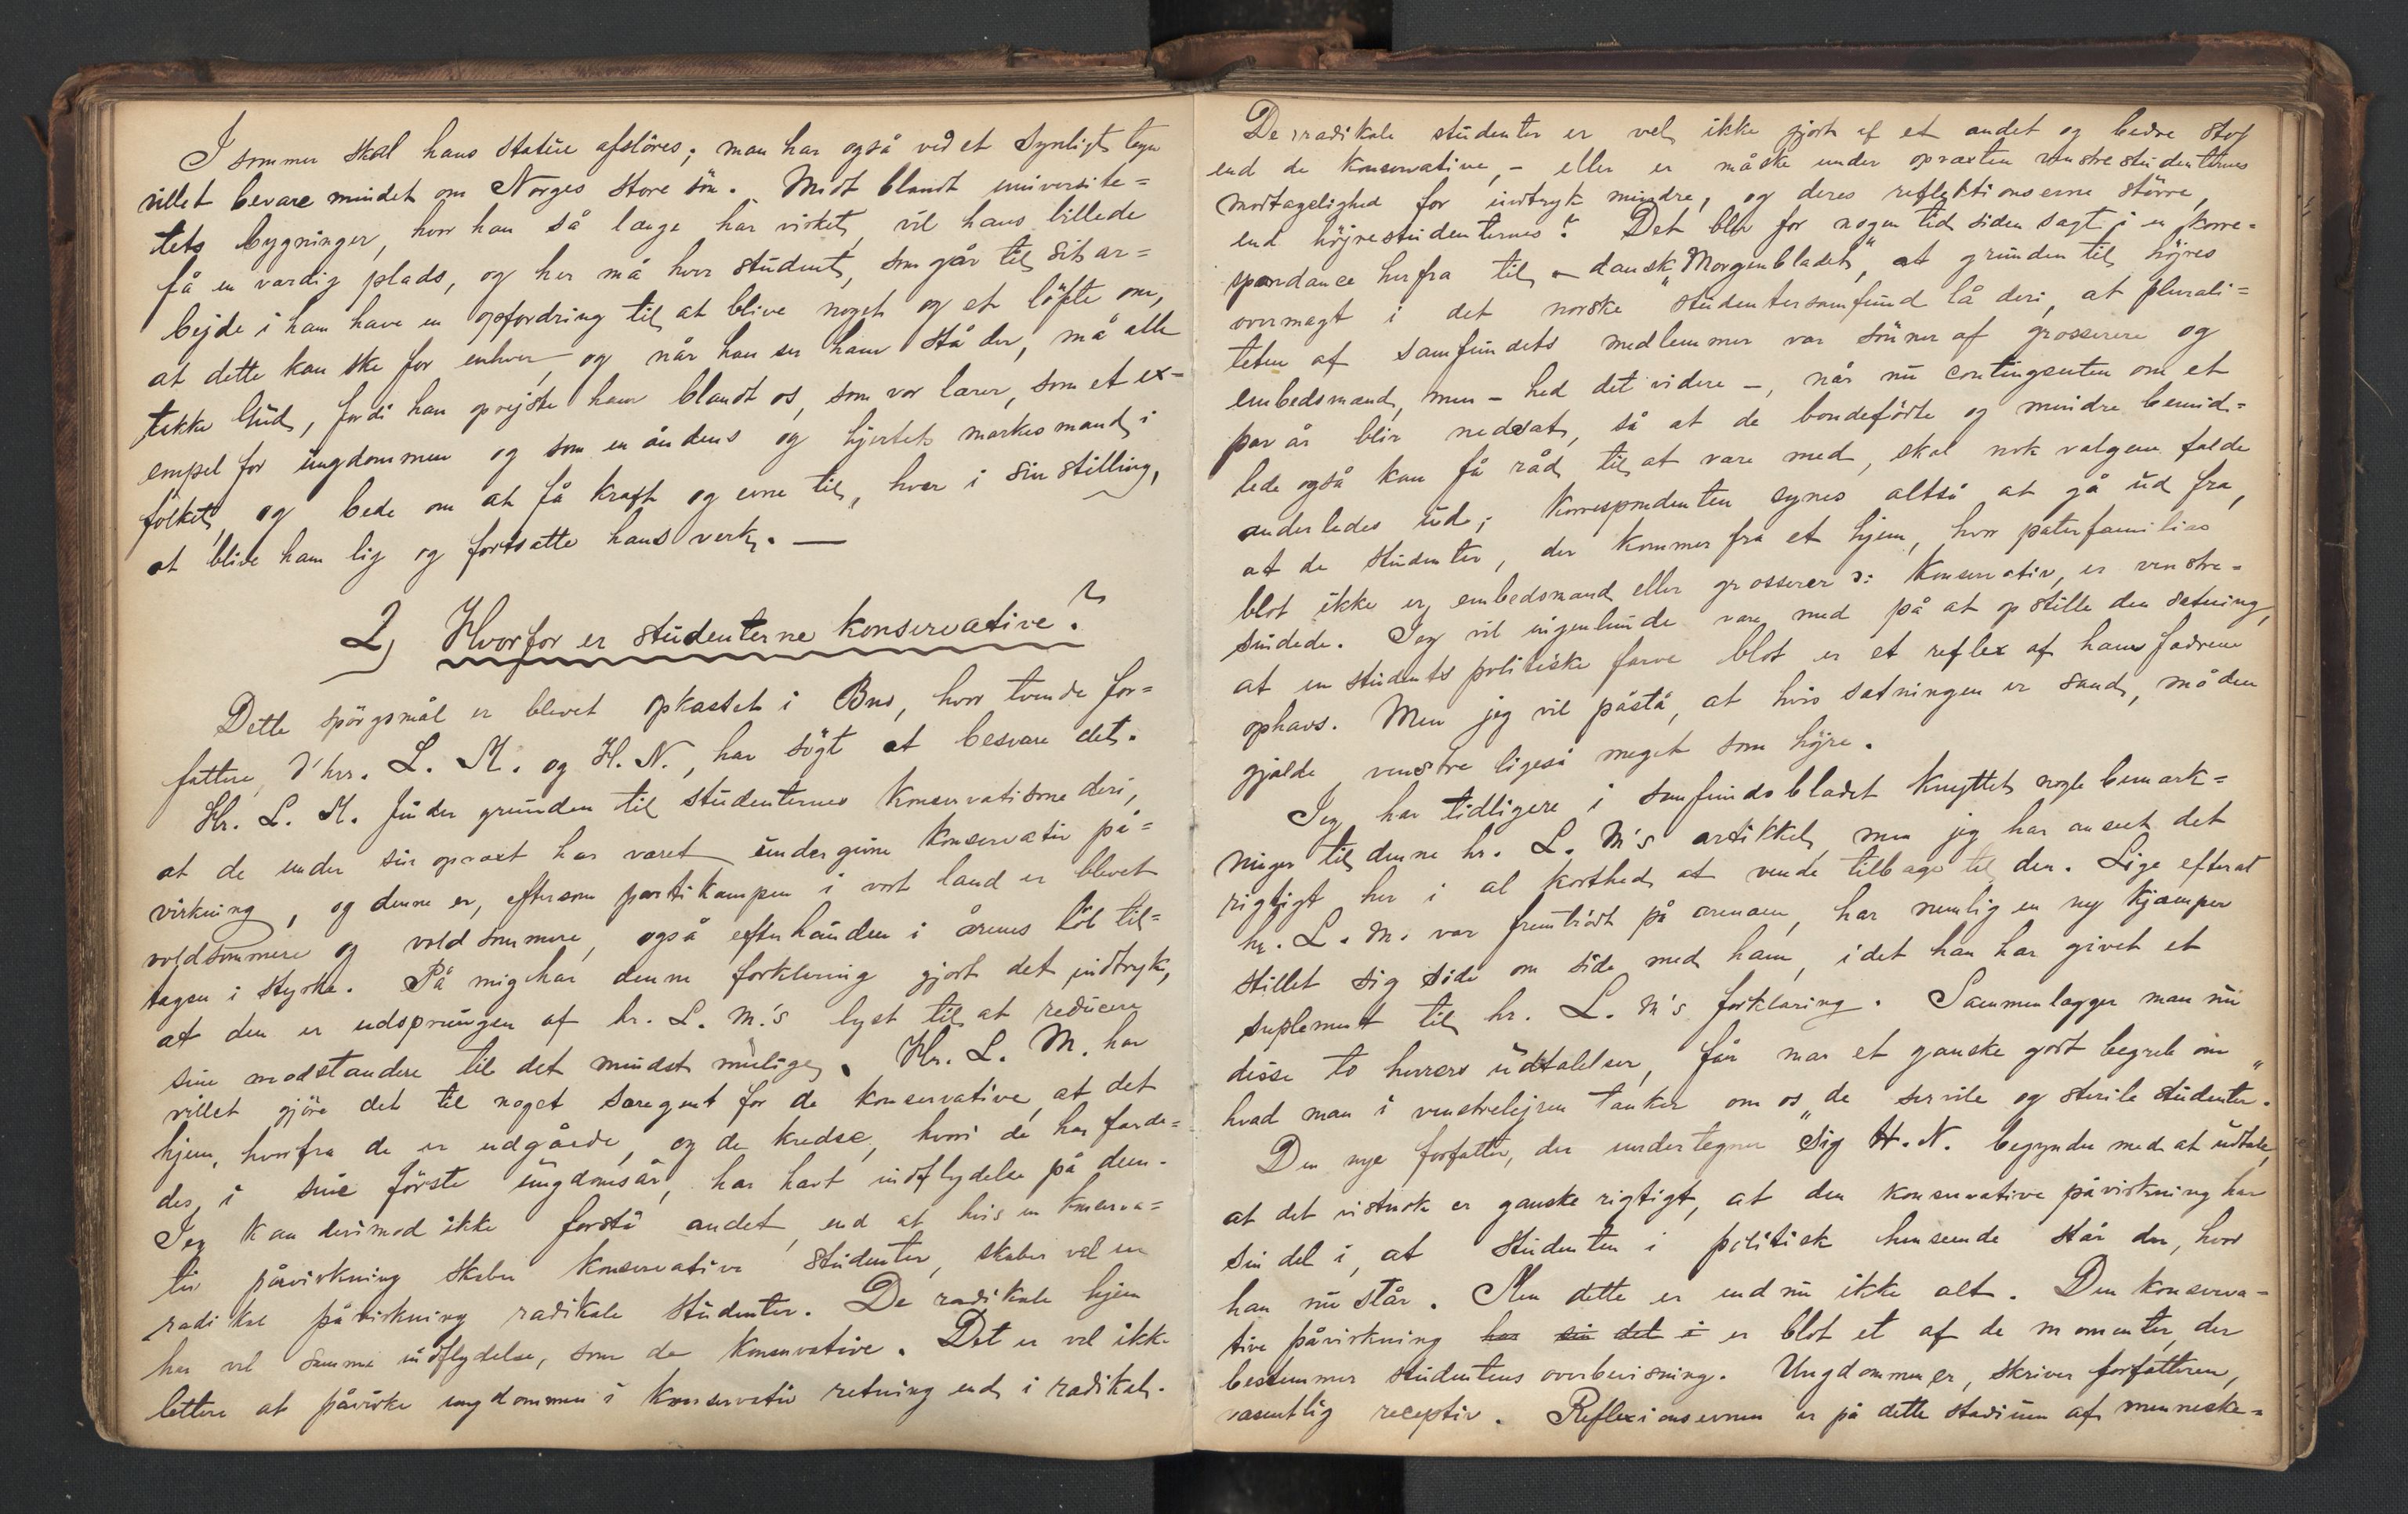 I sommer skal hans statue afsløres; man har også ved et synligt tegn
villet bevare mindet om Norges store søn. Midt blandt universite=
tets bygninger, hvor han så længe har virket, vil hans billede
få en værdig plads, og her må hver student, som går til sit ar=
bejde i ham have en opfordring til at blive noget og et løfte om,
at dette kan ske for enhver, og når han ser ham stå der, må alle
takke Gud, fordi han oprejste ham blandt os, som vor lærer, som et ex=
empel for ungdommen og som en åndens og hjertets mærkesmand i
folket, og bede om at få kraft og evne til, hver i sin stilling,
at blive ham lig og fortsætte hans verk. —
2) Hvorfor er studenterne konservative?
Dette spørgsmål er blevet opkastet i Bns, hvor tvende for=
fattere, d'hrr. L. M. og H. N., har søgt at besvare det.
Hr. L. M. finder grunden til studenternes konservatisme deri,
at de under sin opvæxt har været undergivne konservativ på=
virkning, og denne er, eftersom partikampen i vort land er blevet
voldsommere og voldsommere, også efterhånden i årenes løb til=
tagen i styrke. På mig har denne forklaring gjort det indtryk,
at den er udsprungen af hr. L. M.'s lyst til at reducere
sine modstandere til det mindst mulige. Hr. L. M. har
villet gjöre det til noget særegent for de konservative, at det
hjem, hvorfra de er udgåede, og de kredse, hvori de har færde=
des i sine første ungdomsår, har havt indflydelse på dem.
Jeg kan derimod ikke forstå andet, end at hvis en konserva=
tiv påvirkning skaber konservative studenter, skaber vel en
radikal påvirkning radikale studenter. De radikale hjem
har vel samme indflydelse, som de konservative. Det er vel ikke
lettere at påvirke ungdommen i konservativ retning end i radikal.
De radikale studenter er vel ikke gjort af et andet og bedre stof
end de konservative, – eller er måske under opvæxten venstrestudenternes
modtagelighed for indtryk mindre, og deres reflektionsevne større,
end højrestudenternes? Det blev for nogen tid siden sagt i en korre=
spondance herfra til dansk „Morgenbladet", at grunden til højres
overmagt i det norske studentersamfund lå deri, at plurali=
teten af samfundets medlemmer var sønner af grosserere og
embedsmænd, men – hed det videre –, når nu contingenten om et
par år blir nedsat, så at de bondefødte og mindre bemid=
lede også kan få råd til at være med, skal nok valgene falde
anderledes ud; korrespondenten synes altså at gå ud fra,
at de studenter, der kommer fra et hjem, hvor paterfamilias
blot ikke er embedsmand eller grosserer ɔ: konservativ, er venstre=
sindede. Jeg vil ingenlunde være med på at opstille den sætning,
at en students politiske farve blot er et reflex af hans fædrene
ophavs. Men jeg vil påstå, at hvis sætningen er sand, må den
gjælde venstre ligeså meget som højre.
Jeg har tidligere i samfundsbladet knyttet nogle bemærk=
ninger til denne hr. L. M's artikkel, men jeg har anseet det
rigtigt her i al korthed at vende tilbage til den. Lige efterat
hr. L. M. var fremtrådt på arenaen, har nemlig en ny kjæmper
stillet sig side om side med ham, idet han har givet et
suplement til hr. L. M's forklaring. Sammenlægger man nu
disse to herrers udtalelser, får man et ganske godt begreb om
hvad man i venstrelejren tænker om os „de servile og sterile studenter".
Den nye forfatter, der undertegner sig H. N. begynder med at udtale,
at det vistnok er ganske rigtigt, at den konservative påvirkning har
sin del i, at studenten i politisk henseende står der, hvor
han nu står. Men dette er endnu ikke alt. Den konserva=
tive påvirkning har sin del i er blot et af de momenter, der
bestemmer studentens overbevisning. Ungdommen er, skriver forfatteren,
væsentlig receptiv. Reflexionsevnen er på dette stadium af menneske=